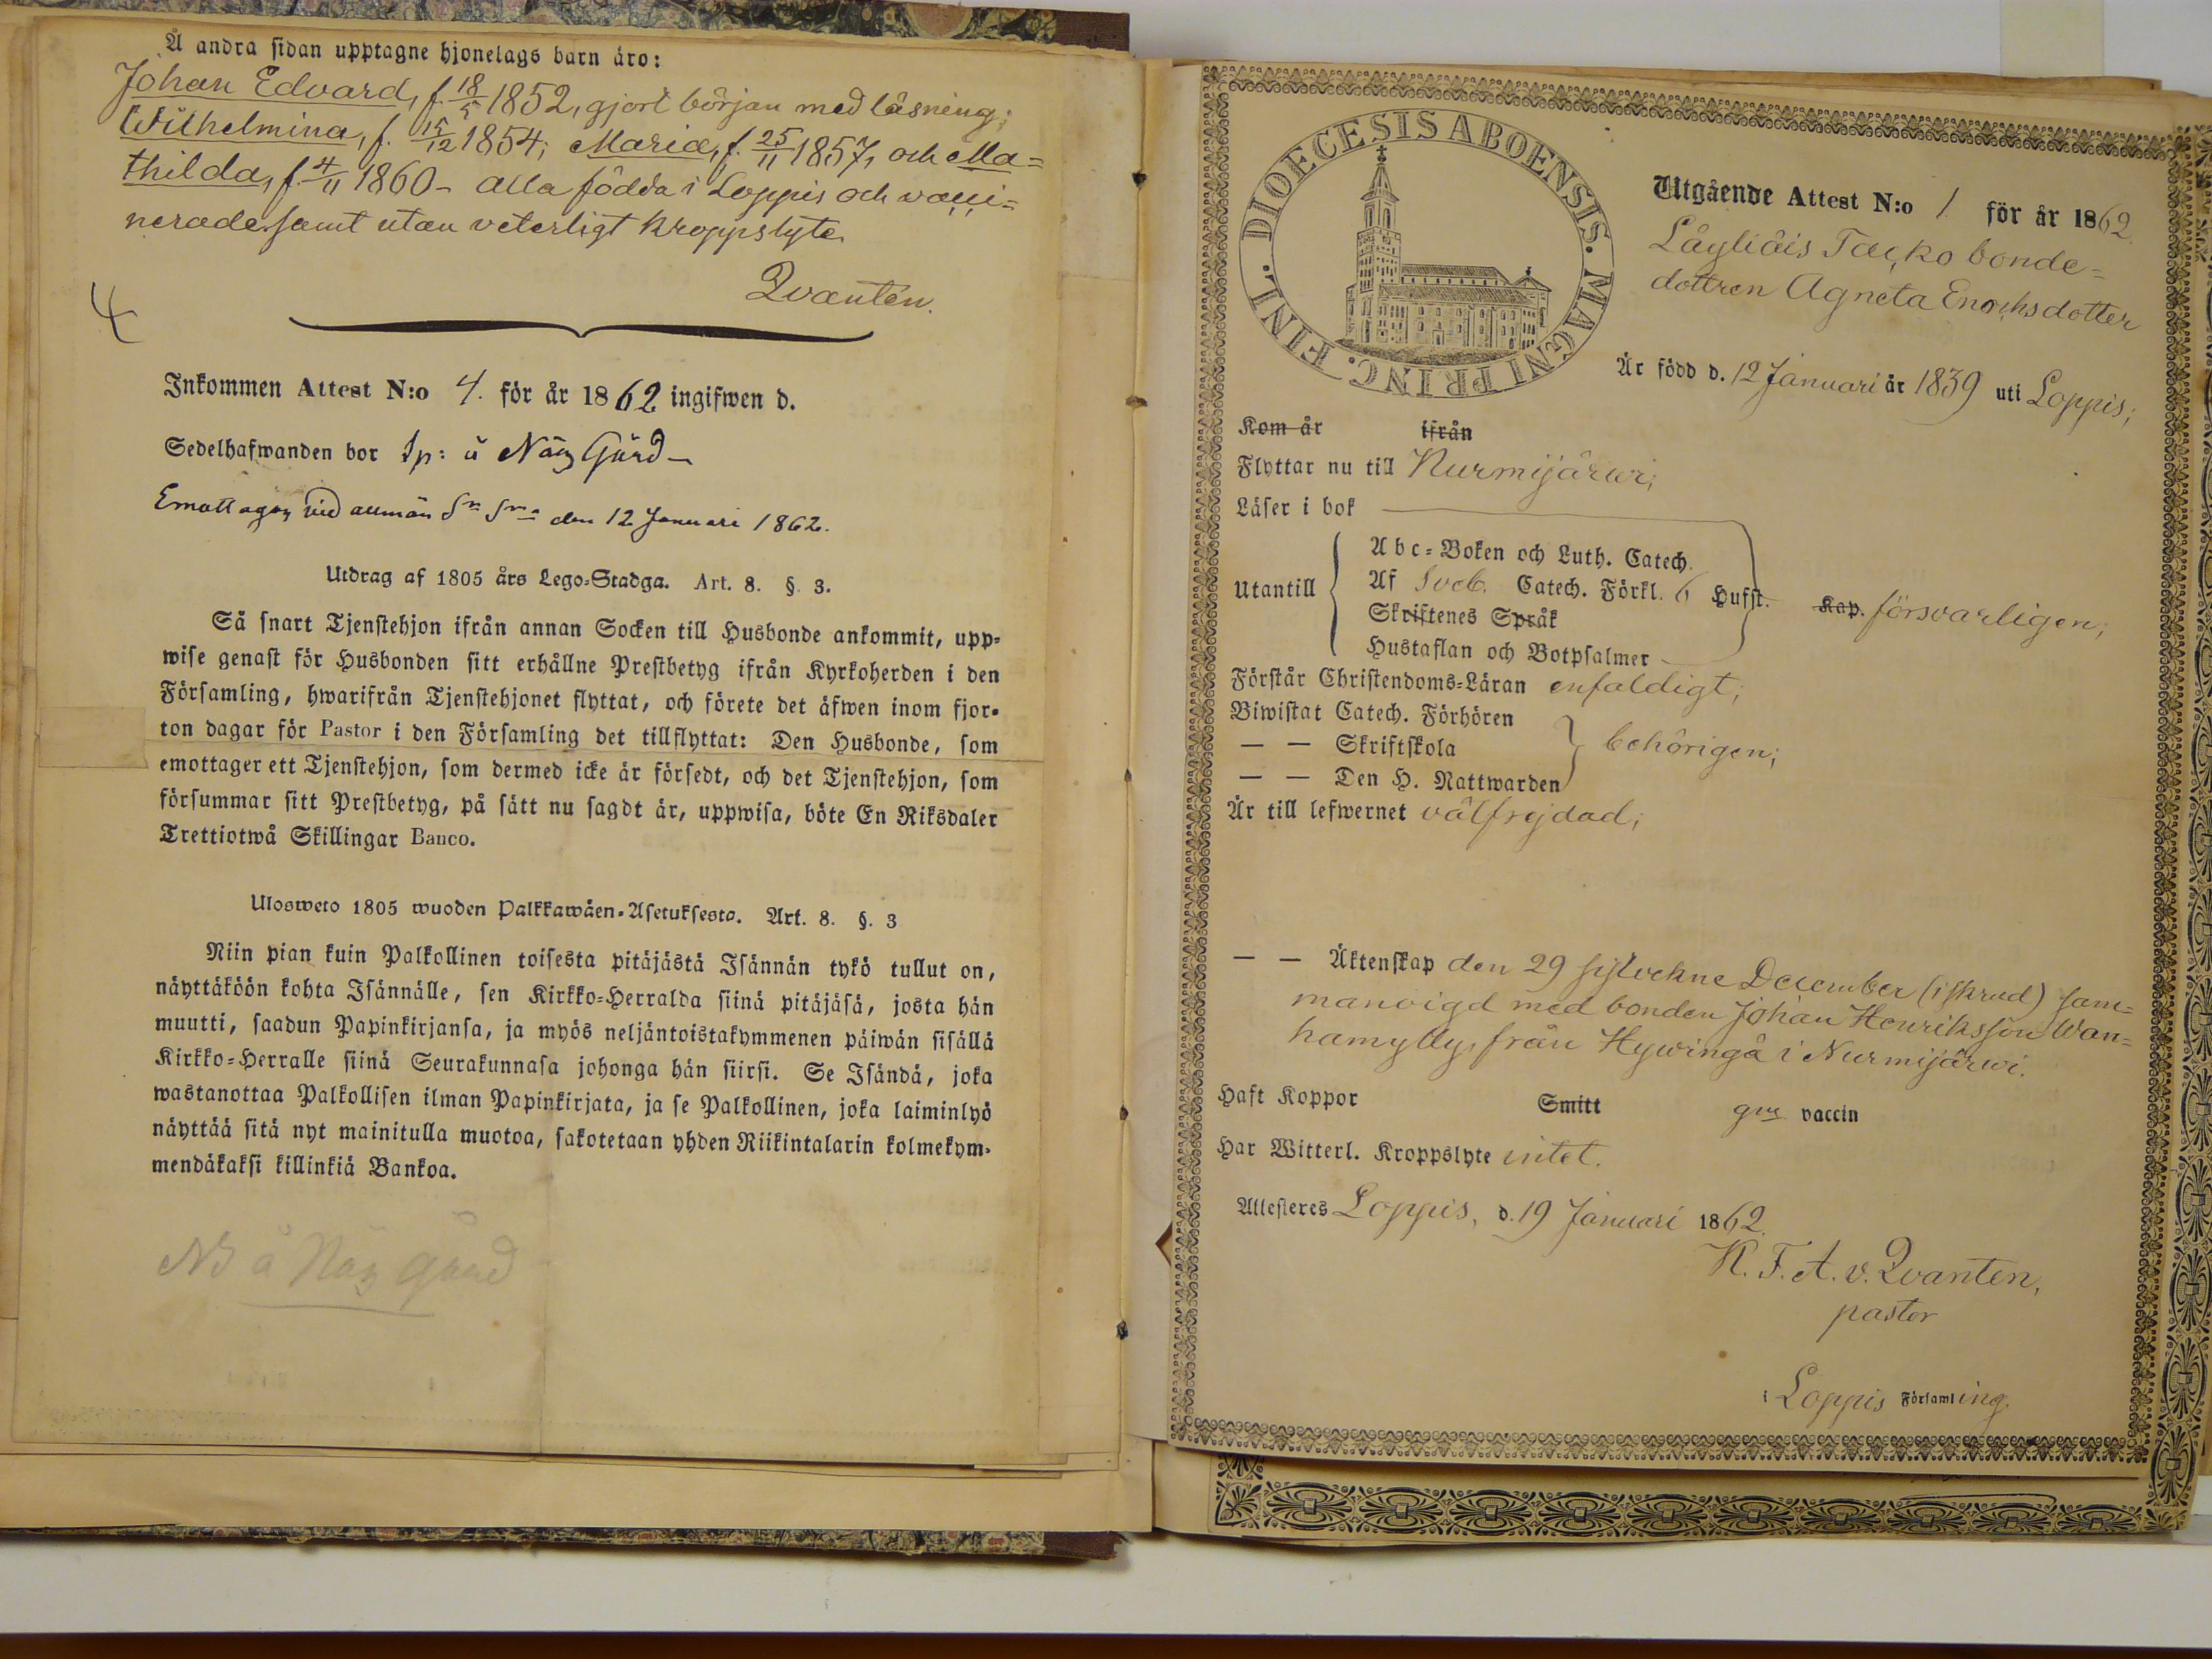 Å andra sidan upptagne hjonelags barn äro:
Johan Edvard, f. 18/5 1852, gjort början med läsning;
Wilhelmina, f. 15/12 1854; Maria, f. 25/11 1857, och Ma=
thilda, f. 4/11 1860 - alla födda i Loppis och vacci=
nerade samt utan veterligt kroppslyte.
Qvantén.
4
Inkommen Attest N:o 4. för år 1862 ingifwen d.
Sedelhafwanden bor Sp: å Näs Gård -
Emottagen vid allmän den 12 Januari 1862.
Utdrag af 1805 års Lego=Stadga. Art. 8. §. 3.
Så snart Tjenstehjon ifrån annan Socken till Husbonde ankommit, upp=
wise genast för Husbonden sitt erhållne Prestbetyg ifrån Kyrkoherden i den
Församling, hwarifrån Tjenstehjonet flyttat, och förete det äfwen inom fjor=
ton dagar för Pastor i den Församling det tillflyttat: Den Husbonde, som
emottager ett Tjenstehjon, som dermed icke är försedt, och det Tjenstehjon, som
försummar sitt Prestbetyg, på sätt nu sagdt är, uppwisa, böte En Riksdaler
Trettiotwå Skillingar Banco.
Ulosweto 1805 wuoden Palkkawäen=Asetuksesta. Art. 8. §. 3
Niin pian kuin Palkollinen toisesta pitäjästä Isännän tykö tullut on,
näyttäköön kohta Isännälle, sen Kirkko=Herralda siinä pitäjäsä, josta hän
muutti, saadun Papinkirjansa, ja myös neljäntoistakymmenen päiwän sisällä
Kirkko=Herralle siinä Seurakunnasa johonga hän siirsi. Se Isändä, joka
wastanottaa Palkollisen ilman Papinkirjata, ja se Palkollinen, joka laiminlyö
näyttää sitä nyt mainitulla muotoa, sakotetaan yhden Riikintalarin kolmekym=
mendäkaksi killinkiä Bankoa.
å Näs gård
FINL. DIOECESIS ABOENSIS. MAGNI PRINC.
Utgående Attest N:o 1 för år 1862.
Läyliäis Tacko bonde=
dottren Agneta Enochsdotter
Är född d. 12 Januari år 1839 uti Loppis;
Kom år ifrån
Flyttar nu till Nurmijärwi;
Läser i bok
Utantill
Abc=Boken och Luth. Catech.
Af Sveb. Catech. Förkl. 6 Hufst. Kap. försvarligen;
Skriftenes Språk
Hustaflan och Botpsalmer
Förstår Christendoms=Läran enfaldigt;
Biwistat Catech. Förhören
— — Skriftskola behörigen;
— — Den H. Nattwarden
Är till lefwernet välfrejdad;
— — Äktenskap den 29 sistvekne December (i skrud) sam=
manvigd med bonden Johan Henriksson Wan=
hamylly, från Hywingä i Nurmijärwi.
Haft Koppor Smitt vaccin
Har Witterl. Kroppslyte intet.
Attesteres Loppis, d. 19 Januari 1862.
K. F. A. v. Qvanten,
pastor
i Loppis Församling.